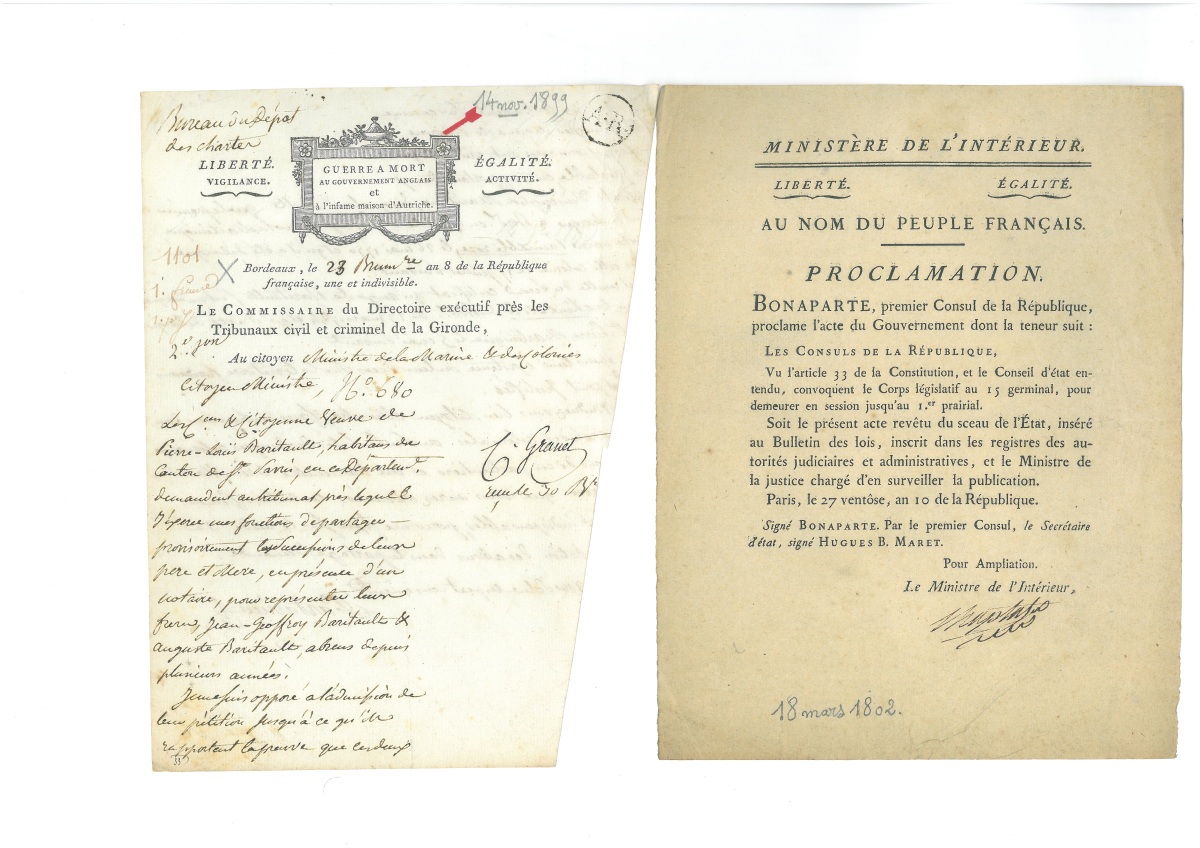 Bureau du Dépot
des chartes
14 nov. 1899
A.R
LIBERTÉ.
VIGILANCE.
GUERRE A MORT
AU GOUVERNEMENT ANGLAIS
et
à l'infame maison d'Autriche.
ÉGALITÉ.
ACTIVITÉ.
1101
X
Bordeaux, le 23 Brumre an 8 de la République
française, une et indivisible.
LE COMMISSAIRE du Directoire exécutif près les
Tribunaux civil et criminel de la Gironde,
Au citoyen Ministre de la Marine & des Colonies
Citoyen Ministre, No. 680
Les Cen & Citoyenne veuve de
Pierre-Louis Baritault, habitans du
Canton de St. Savin, en ce Départemt.
demandent au tribunat près lequel
J'éxerce mes fonctions de partager
provisoirement les Successions de leurs
pere et Mere, en présence d'un
notaire, pour représenter leurs
freres, Jean-Geoffroy Baritault &
auguste Baritault, absens depuis
plusieurs années.
Je me suis opposé a l'admission de
leur pétition jusqu'à ce qu'ils
rapportent la preuve que ces deux
C. Granet
33
MINISTÈRE DE L'INTÉRIEUR.
LIBERTÉ. ÉGALITÉ.
AU NOM DU PEUPLE FRANÇAIS.
PROCLAMATION.
BONAPARTE, premier Consul de la République,
proclame l'acte du Gouvernement dont la teneur suit :
LES CONSULS DE LA RÉPUBLIQUE,
Vu l'article 33 de la Constitution, et le Conseil d'état en-
tendu, convoquent le Corps législatif au 15 germinal, pour
demeurer en session jusqu'au 1.er prairial.
Soit le présent acte revêtu du sceau de l'État, inséré
au Bulletin des lois, inscrit dans les registres des au-
torités judiciaires et administratives, et le Ministre de
la justice chargé d'en surveiller la publication.
Paris, le 27 ventôse, an 10 de la République.
Signé BONAPARTE. Par le premier Consul, le Secrétaire
d'état, signé HUGUES B. MARET.
Pour Ampliation.
Le Ministre de l'Intérieur,
18 mars 1802.